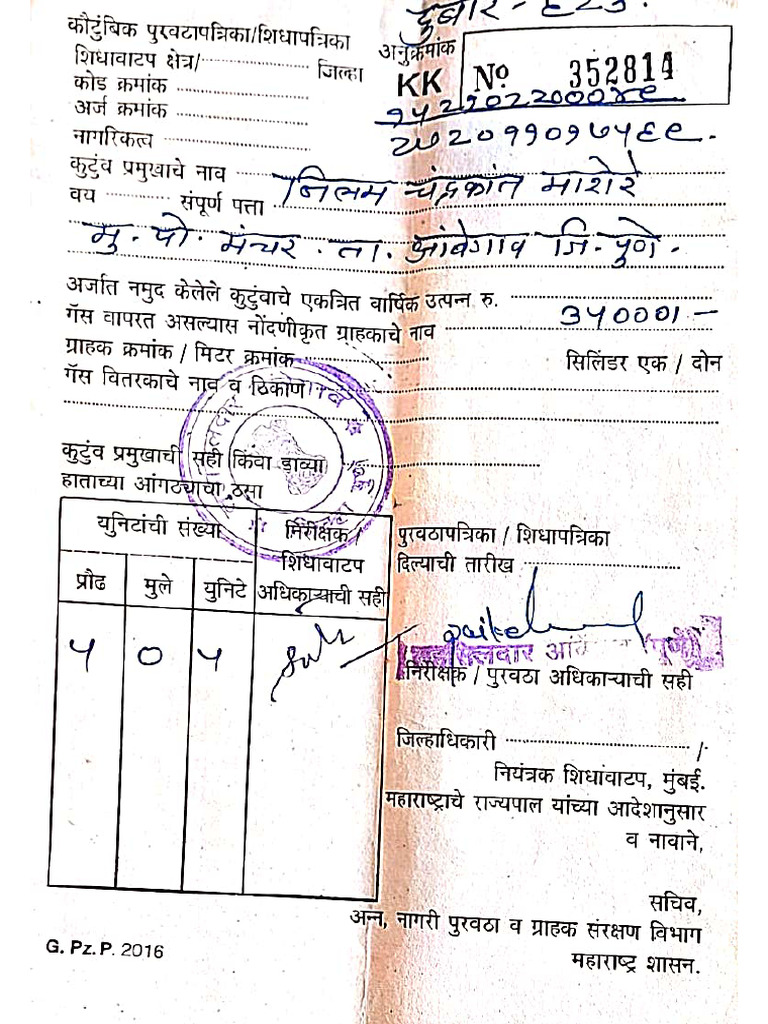 दुबार - ६२३.
कौटुंबिक पुरवठापत्रिका/शिधापत्रिका
अनुक्रमांक
शिधावाटप क्षेत्र/ जिल्हा
KK Nº 352814
कोड क्रमांक
अर्ज क्रमांक
नागरिकत्व
कुटुंब प्रमुखाचे नाव
वय संपूर्ण पत्ता
चंद्रकांत माशेरे
मु. पो. मंचर. ता. आंबेगाव जि. पुणे.
अर्जात नमुद केलेले कुटुंबाचे एकत्रित वार्षिक उत्पन्न रु.
गॅस वापरत असल्यास नोंदणीकृत ग्राहकाचे नाव
ग्राहक क्रमांक / मिटर क्रमांक सिलिंडर एक / दोन
गॅस वितरकाचे नाव व ठिकाण
कुटुंब प्रमुखाची सही किंवा डाव्या
हाताच्या आंगठ्याचा ठसा
युनिटांची संख्या
निरीक्षक/
शिधावाटप
अधिकाऱ्याची सही
प्रौढ मुले युनिटे
५ ० ५
पुरवठापत्रिका / शिधापत्रिका
दिल्याची तारीख
निरीक्षक / पुरवठा अधिकाऱ्याची सही
जिल्हाधिकारी /
नियंत्रक शिधावाटप, मुंबई.
महाराष्ट्राचे राज्यपाल यांच्या आदेशानुसार
व नावाने,
सचिव,
अन्न, नागरी पुरवठा व ग्राहक संरक्षण विभाग
महाराष्ट्र शासन.
G. Pz. P. 2016